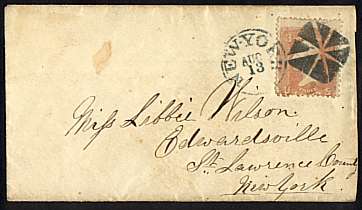 NEW-YORK
AUG
13
Miss Libbie Wilson.
Edwardsville
St. Lawrence County
New York.